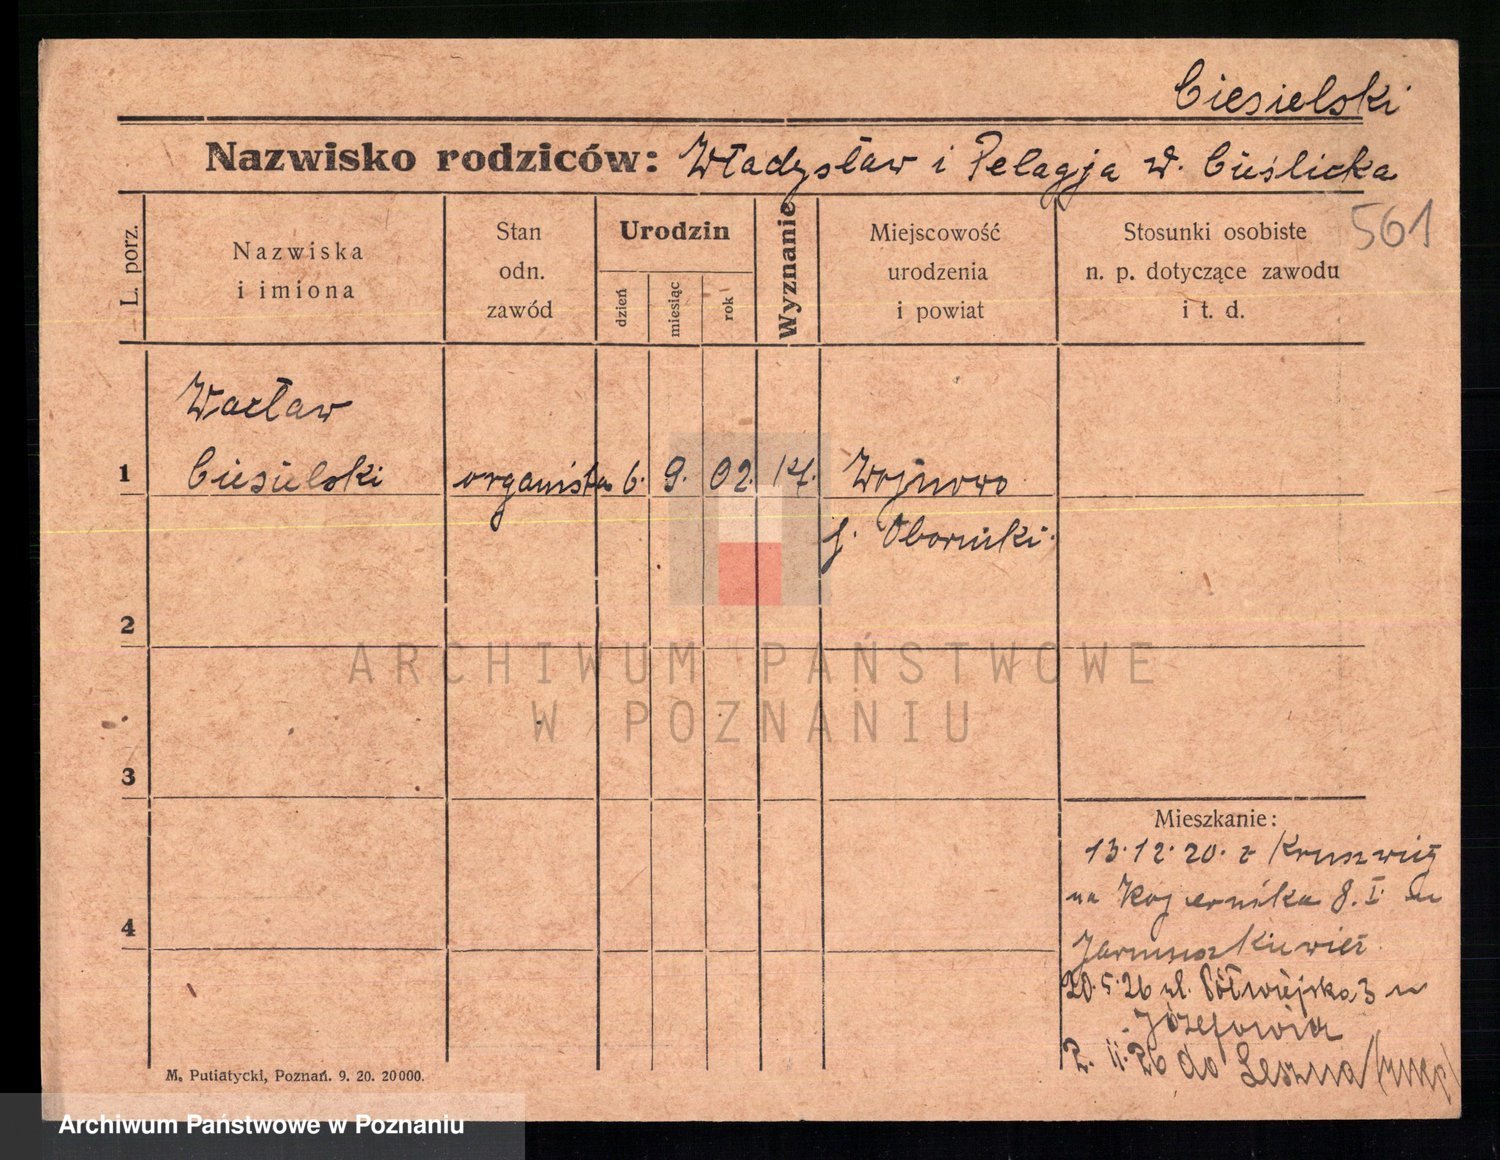 Ciesielski
Nazwisko rodziców: Władysław i Pelagja
561
L. porz.
Nazwiska
i imiona
Stan
odn.
zawód
Urodzin
dzień
miesiąc
rok
Wyznanie
Miejscowość
urodzenia
i powiat
Stosunki osobiste
n. p. dotyczące zawodu
i t. d.
Wacław
1 Ciesielski organista 6. 9. 02. kt. Wojnowo
Oborniki.
2
ARCHIWUM PAŃSTWOWE
W POZNANIU
3
Mieszkanie:
13.12.20. z
na 8. I.
4
20.5.26 ul. Półwiejska 3
2. 11. 26 do Leszna
M. Putiatycki, Poznań. 9. 20. 20000.
Archiwum Państwowe w Poznaniu